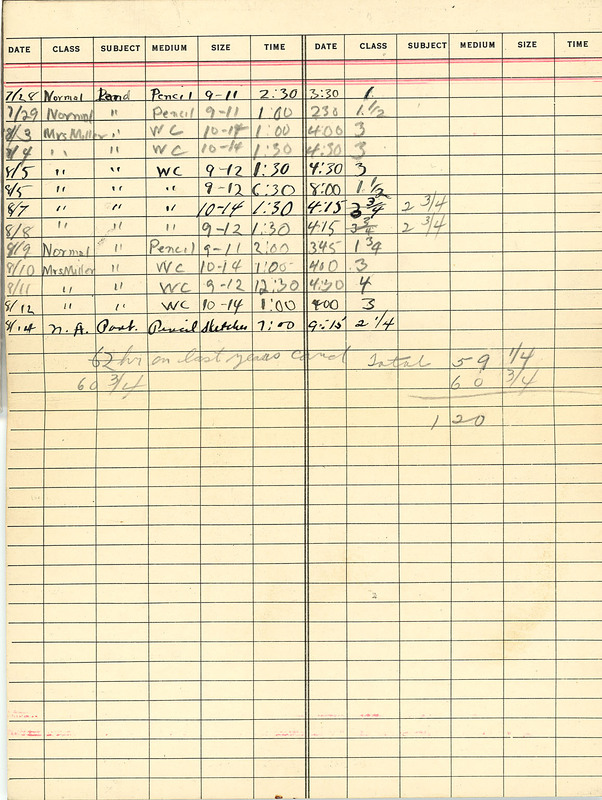 DATE CLASS SUBJECT MEDIUM SIZE TIME DATE CLASS SUBJECT MEDIUM SIZE TIME
7/28 Normal Land Pencil 9-11 2:30 3:30 1
7/29 Normal " Pencil 9-11 1:00 230 1 1/2
8/3 Mrs Miller " WC 10-14 1:00 4:00 3
8/4 " " " WC 10-14 1:30 4:30 3
8/5 " " WC 9-12 1:30 4:30 3
8/5 " " " 9-12 6:30 8:00 1 1/2
8/7 " " " 10-14 1:30 4:15 3 3/4 2 3/4
8/8 " " " 9-12 1:30 415 3 3/4 2 3/4
8/9 Normal " Pencil 9-11 2:00 345 1 3/4
8/10 Mrs Miller " WC 10-14 1:00 400 3
8/11 " " WC 9-12 12:30 4:30 4
8/12 " " WC 10-14 1:00 400 3
8/14 N.A. Port. Pencil Sketches 7:00 9:15 2 1/4
62 hr on last years card Total 59 1/4
60 3/4 60 3/4
120